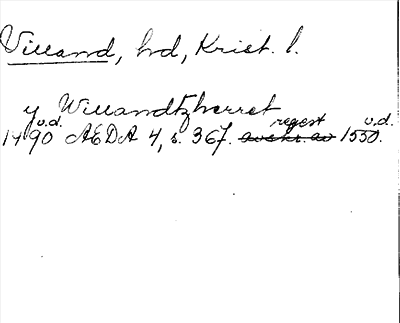 Villand, hd, Krist. l.
y Willandtzherret
1490 u.d. AEDA 4, s. 367. regest avskr. av 1550. u.d.